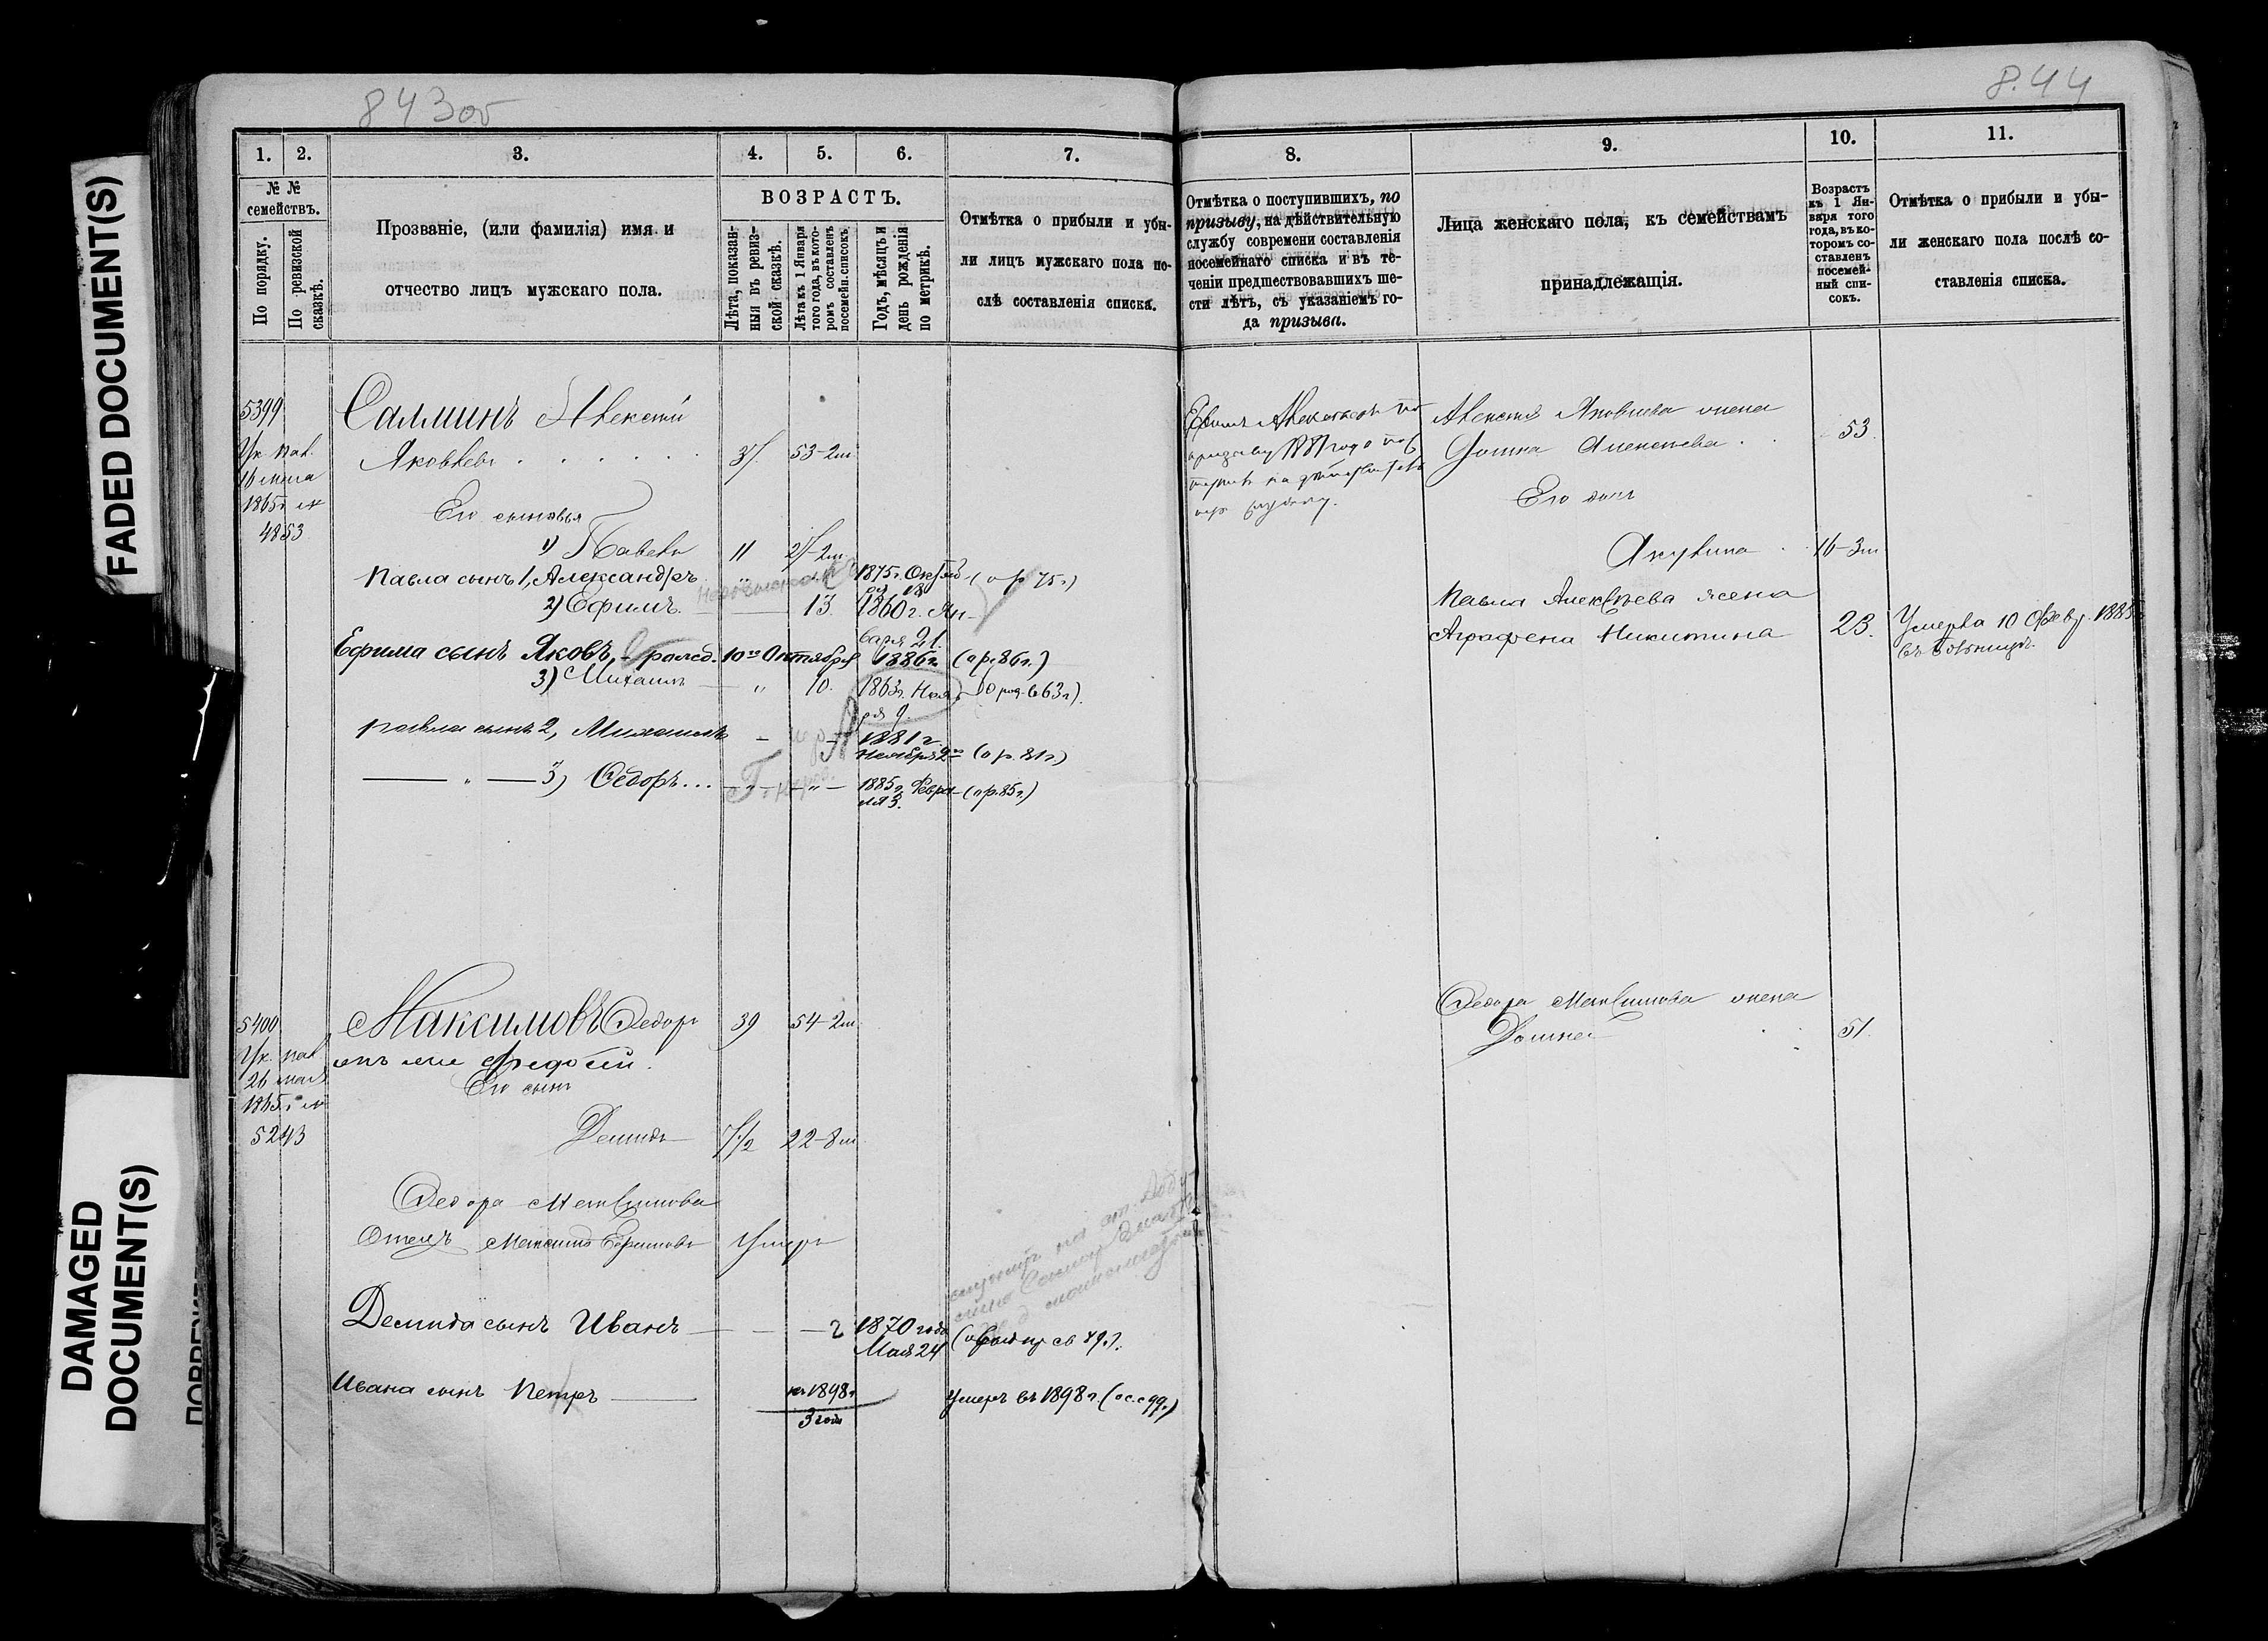 843об
8.44
FADED DOCUMENT(S)
DAMAGED
DOCUMENT(S)
1. 2. 3. 4. 5. 6. 7.
№ №
семействъ.
По порядку.
По ревизской
сказкѣ.
Прозваніе, (или фамилія) имя и
отчество лицъ мужскаго пола.
ВОЗРАСТЪ.
Лѣта, показан-
ныя въ ревиз-
ской сказкѣ.
Лѣта къ 1 Января
того года, въ кото-
ромъ составленъ
посемейн. список.
Годъ, мѣсяцъ и
день рожденія
по метрикѣ.
Отмѣтка о прибыли и убы-
ли лицъ мужскаго пола по-
слѣ составленія списка.
5399
Ук. пал.
16
1865 г. №
4853
Салминъ Алексѣй
Яковлевъ 37. 53-2м
Его сыновья
1) Павелъ 11 27-2м
Павла сынъ 1, Александръ " 1875 г. Октяб- (о р 75 г)
ря 18
2) Ефимъ. 13 1860 г. Ян-
варя 21.
Ефима сынъ Яковъ, рожд. 10го Октября 1886 г. (о р. 86 г.)
3) Михаилъ " 10. 1863 г. Нояб-
ря 9.
Павла сынъ 2, Михаилъ - - 1881 г.
Ноября 9го (о р. 81 г)
— " — 3) Ѳедоръ... — " — — " — 1885 г. Февра- (о р. 85 г.)
ля 3.
5400
Ук. пал.
26 мая
1865 г. №
5243
Максимовъ Ѳедоръ 39 54-2м
онъ же Ѳедотъ.
Его сынъ
Демидъ 7 1/2 22-8м
Ѳедора Максимова
Отецъ Максимъ Ефимовъ Умеръ
Демида сынъ Иванъ — — — 2 1870 года
Мая 24
Ивана сынъ Петръ — къ 1898 г. Умеръ въ 1898 г. (ос. с 99.)
3 года
8. 9. 10. 11.
Отмѣтка о поступившихъ, по
призыву, на дѣйствительную
службу современи составленія
посемейнаго списка и въ те-
ченіи предшествовавшихъ ше-
сти лѣтъ, съ указаніемъ го-
да призыва.
Лица женскаго пола, къ семействамъ
принадлежащія.
Возрастъ
къ 1 Ян-
варя того
года, въ ко-
торомъ со-
ставленъ
посемей-
ный спи-
сокъ.
Отмѣтка о прибыли и убы-
ли женскаго пола послѣ со-
ставленія списка.
Ефимъ Алексѣевъ по
призыву 1881 года пос
тупилъ на дѣйствитель
ную службу.
Алексѣя Яковлева жена
Домна Алексѣева 53
Его дочь
Акулина 16-3м
Павла Алексѣева жена
Аграфена Никитина 23. Умерла 10 Февр. 1885
въ больницѣ.
Ѳедора Максимова жена
Домна 51.